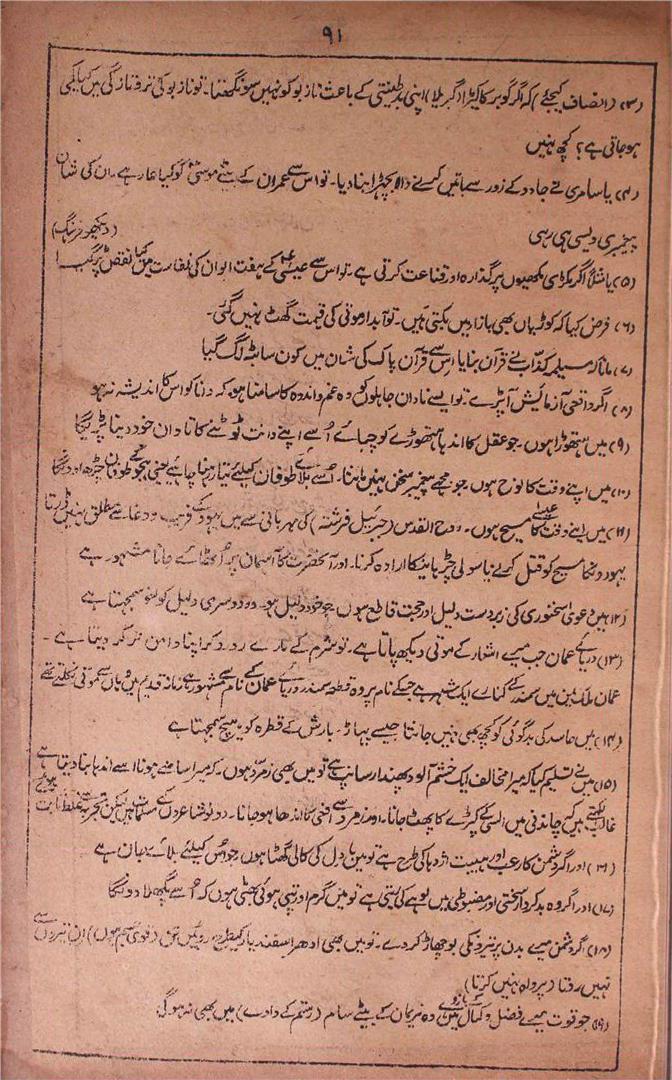 ۹۱
(۳) (انصاف کیجئے) کہ اگر گوبر کا کیڑا (گبریلا) اپنی بدطینتی کے باعث نازبو کو نہیں سونگھتا۔ تو نازبو کی تروتازگی میں کیا کمی
ہوجاتی ہے؟ کچھ نہیں
(۴) یا سامری نے جادو کے زور سے باتیں کرنے والا بچھڑا بنا دیا۔ تو اس سے عمران کے بیٹے موسیٰؑ کو کیا عار ہے۔ ان کی شان
پیغمبری ویسی ہی رہی (دیکھو فرہنگ)
(۵) یا مثلاً اگر مکڑی مکھیوں پر گذارہ اور قناعت کرتی ہے۔ تو اس سے عیسیٰؑ کے ہفت الوان کی نظارت میں کیا نقص پڑگیا
(۶) فرض کیا کہ کوڑیاں بھی بازار میں بکتی ہیں۔ تو آبدار موتی کی قیمت گھٹ نہیں گئی۔
(۷) مانا کہ مسیلمہ کذاب نے قرآن بنایا اس سے قرآن پاک کی شان میں کون سا بٹہ لگ گیا
(۸) اگر واقعی آزمایش آپڑے۔ تو ایسے نادان جاہلوں کو وہ غم و اندوہ کا سامنا ہو۔ کہ دانا کو اس کا اندیشہ نہ ہو
(۹) میں ہتھوڑا ہوں۔ جو عقل کا اندھا ہتھوڑے کو چبائے اُسے اپنے دانت ٹوٹنے کا تاوان خود دینا پڑیگا
(۱۰) میں اپنے وقت کا نوح ہوں جو مجھے پیغمبر سخن نہیں مانتا۔ اُسے بلائے طوفان کیلئے تیار رہنا چاہئے یعنی ہجو کے طوفان چڑھادونگا
(۱۱) میں اپنے وقت کا عیسےٰ مسیح ہوں۔ روح القدس (جبرئیل فرشتہ) کی مہربانی سے میں یہود کے فریب و دغا سے مطلق نہیں ڈرتا
یہود کا مسیح کو قتل کرنے یا سولی چڑھانیکا ارادہ کرنا۔ اور آنحضرت کا آسمان پر اُٹھائے جانا مشہور ہے
(۱۲) میں دعویٰ سخنوری کی زبردست دلیل اور حجت قاطع ہوں جو خود دلیل ہو۔ وہ دوسری دلیل کو لغو سمجھتا ہے
(۱۳) دریائے عمان جب میرے اشعار کے موتی دیکھ پاتا ہے۔ تو شرم کے مارے رو رو کر اپنا دامن تر کر دیتا ہے۔
عمان ملک یمن میں سمندر کے کنارے ایک شہر ہے جسکے نام پر وہ قطعہ سمندر دریائے عمان کے نام سے مشہور ہے زمانہ قدیم میں وہاں سے موتی نکلتے تھے
(۱۴) میں حاسد کی بدگوئی کو کچھ بھی نہیں جانتا جیسے پہاڑ۔ بارش کے قطرہ کو ہیچ سمجھتا ہے
(۱۵) میں نے تسلیم کیا کہ میرا مخالف ایک خشم آلود پھندار سانپ ہے تو میں بھی زمرد ہوں۔ کہ میرا سامنے ہونا اسے اندھا بنا دیتا ہے
غالب لکھتے ہیں کہ چاندنی میں السی کے کپڑے کا پھٹ جانا۔ اور زمرد سے افعی کا اندھا ہو جانا۔ دونو شاعروں کے مسلمات ہیں لیکن تجربہ سے غلط ثابت ہوئے
(۱۶) اور اگر دشمن کا رعب اور ہیبت اژدہا کی طرح ہے تو میں بادل کی کالی گھٹا ہوں جو اُس کیلئے بلائے جان ہے
(۱۷) اور اگر وہ بدکردار سختی اور مضبوطی میں لوہے کی سی ہے تو میں گرم اور تپی ہوئی بھٹی ہوں کہ اُسے پگھلا دونگا
(۱۸) اگر دشمن میرے بدن پر تیروں کی بوچھاڑ کردے۔ تو میں بھی ادھر اسفندیار کیطرح روئیں تن (قوی جسم ہوں) ان تیروں سے
نہیں رفتا (پرواہ نہیں کرتا)
(۱۹) جو قوت میرے فضل و کمال کے بازو میں ہے وہ نریمان کے بیٹے سام (رستم کے دادے) میں بھی نہ ہوگی